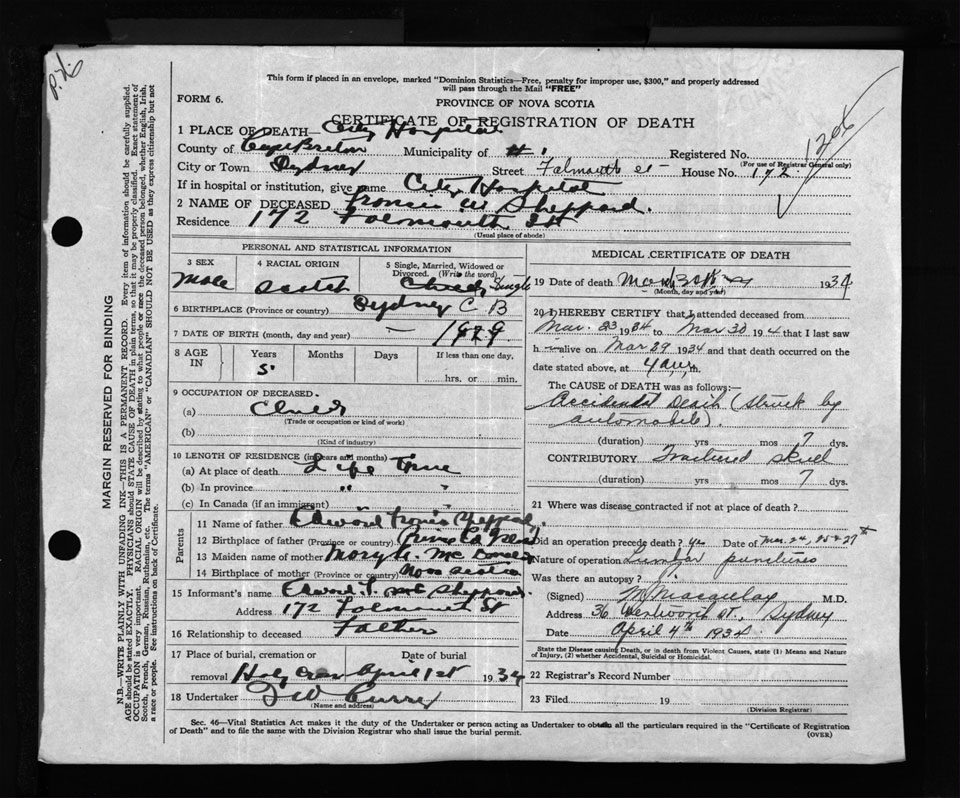 This form if placed in an envelope, marked "Dominion Statistics—Free, penalty for improper use, $300," and properly addressed
will pass through the Mail "FREE"
FORM 6.
PROVINCE OF NOVA SCOTIA
CERTIFICATE OF REGISTRATION OF DEATH
1206
1 PLACE OF DEATH— City Hospital
County of Cape Breton Municipality of # 1 Registered No.
(For use of Registrar General only)
City or Town Sydney Street Falmouth st House No. 172
If in hospital or institution, give name City Hospital
2 NAME OF DECEASED Francis W Sheppard.
Residence 172 Falmouth St
(Usual place of abode)
PERSONAL AND STATISTICAL INFORMATION
3 SEX
Male
4 RACIAL ORIGIN
Scotch
5 Single, Married, Widowed or
Divorced. (Write the word)
Child Single
6 BIRTHPLACE (Province or country) Sydney C B
7 DATE OF BIRTH (month, day and year) — 1929
8 AGE
IN
Years Months Days If less than one day,
5
hrs. or min.
9 OCCUPATION OF DECEASED.
(a) Child
(Trade or occupation or kind of work)
(b)
(Kind of industry)
10 LENGTH OF RESIDENCE (in years and months)
(a) At place of death Life time
(b) In province " "
(c) In Canada (if an immigrant) " "
Parents
11 Name of father Edward Francis Sheppard.
12 Birthplace of father (Province or country)
13 Maiden name of mother Mary
14 Birthplace of mother (Province or country) Nova Scotia
15 Informant's name Edward F. Sheppard
Address 172 Falmouth St
16 Relationship to deceased Father
17 Place of burial, cremation or Date of burial
removal Holy Cross April 1st 1934
18 Undertaker Curry
(Name and address)
MEDICAL CERTIFICATE OF DEATH
19 Date of death March 30th 1934
(Month, day and year)
20 I HEREBY CERTIFY that I attended deceased from
Mar. 23 1934 to Mar 30 1934 that I last saw
h alive on Mar 29 1934 and that death occurred on the
date stated above, at 4 a m.
The CAUSE of DEATH was as follows:—
Accidental Death (struck by
automobile).
(duration) yrs mos 7 dys.
CONTRIBUTORY Fractured skull
(duration) yrs mos 7 dys.
21 Where was disease contracted if not at place of death?
Did an operation precede death? Yes Date of Mar. 24, 25 & 27th
Nature of operation Lumbar punctures
Was there an autopsy?
(Signed) M.D.
Address 36 Wentworth st., Sydney
Date April 4th 1934.
State the Disease causing Death, or in death from Violent Causes, state (1) Means and Nature
of Injury, (2) whether Accidental, Suicidal or Homicidal.
22 Registrar's Record Number
23 Filed 19
(Division Registrar)
Sec. 46—Vital Statistics Act makes it the duty of the Undertaker or person acting as Undertaker to obtain all the particulars required in the "Certificate of Registration
of Death" and to file the same with the Division Registrar who shall issue the burial permit.
(OVER)
MARGIN RESERVED FOR BINDING
N.B.—WRITE PLAINLY WITH UNFADING INK—THIS IS A PERMANENT RECORD. Every item of information should be carefully supplied.
AGE should be stated EXACTLY. PHYSICIANS should STATE CAUSE OF DEATH in plain terms, so that it may be properly classified. Exact statement of
OCCUPATION is very important. RACIAL ORIGIN will be described by stating to what people or race the deceased person belonged, whether English, Irish,
Scotch, French, German, Russian, Ruthenian, etc. The terms "AMERICAN" or "CANADIAN" SHOULD NOT BE USED as they express citizenship but not
a race or people. See instructions on back of Certificate.